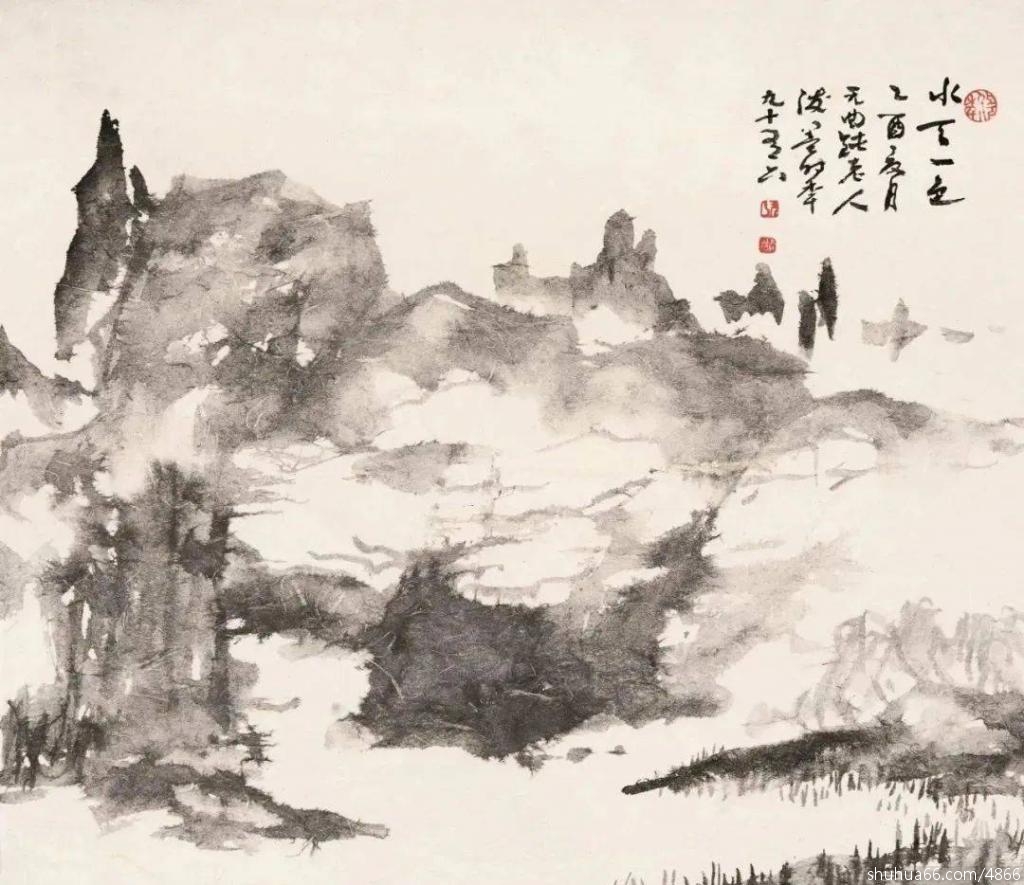 水天一色
乙酉夏月
老人
时年
九十有六
shuhua66.com/4866